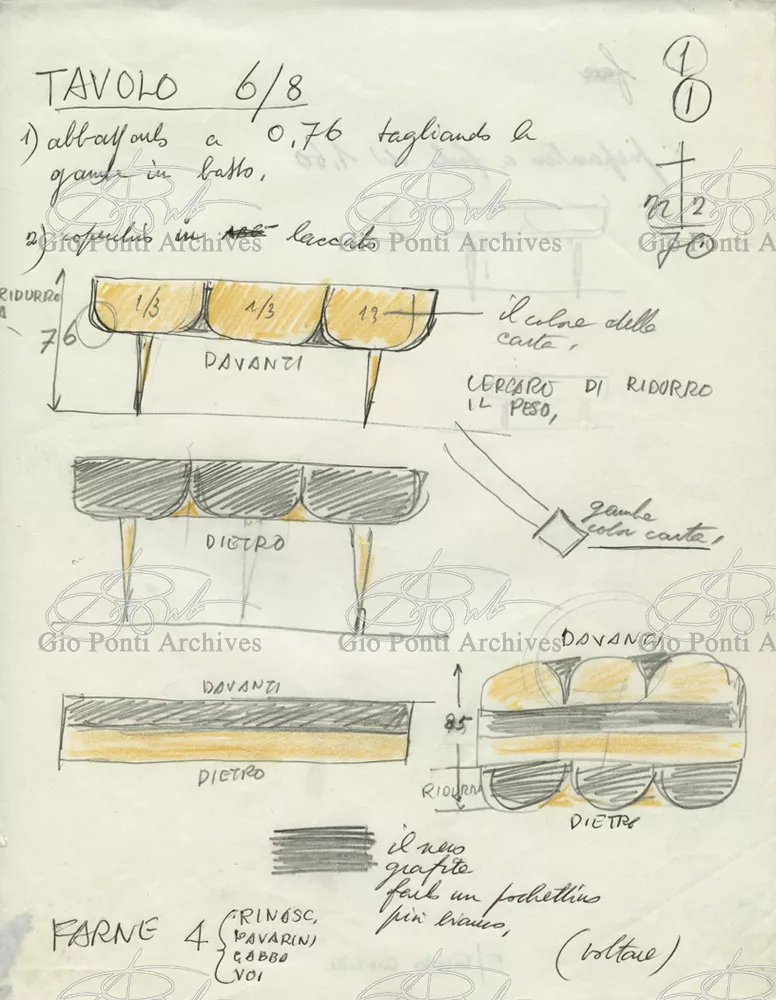 TAVOLO 6/8
1
1
1) abbassarlo a 0,76 tagliando le
gambe in basso,
2) coperchio in laccato
72/2
70
RIDURRO
A
76
1/3
1/3
13
DAVANTI
il colore della
carta,
CERCARO DI RIDURRO
IL PESO,
DIETRO
gambe
color carta,
DAVANTI
DIETRO
DAVANTI
85
DIETRO
il nero
grafite
farlo un pochettino
più bianco,
FARNE 4
RINASC,
PAVARINI
GABBO
VOI
(voltare)
Gio Ponti Archives
Gio Ponti Archives
Gio Ponti Archives
Gio Ponti Archives
Gio Ponti Archives
Gio Ponti Archives